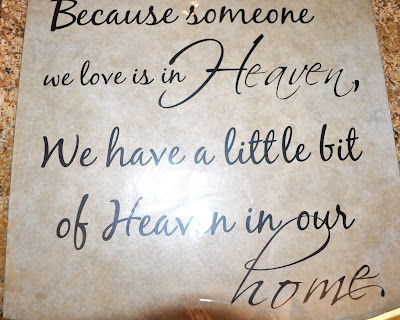 Because someone
we love is in Heaven,
We have a little bit
of Heaven in our
home.